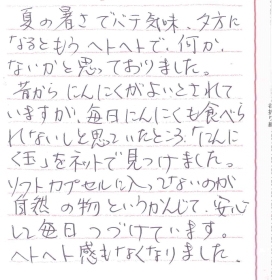 夏の暑さでバテ気味、夕方に
なるともうヘトヘトで、何か
ないかと思っておりました。
昔からにんにくがよいとされて
いますが、毎日にんにくも食べら
れないしと思っていたところ、「にんに
く玉」をネットで見つけました。
ソフトカプセルに入ってないのが
自然の物というかんじで、安心
して毎日つづけています。
ヘトヘト感もなくなりました。